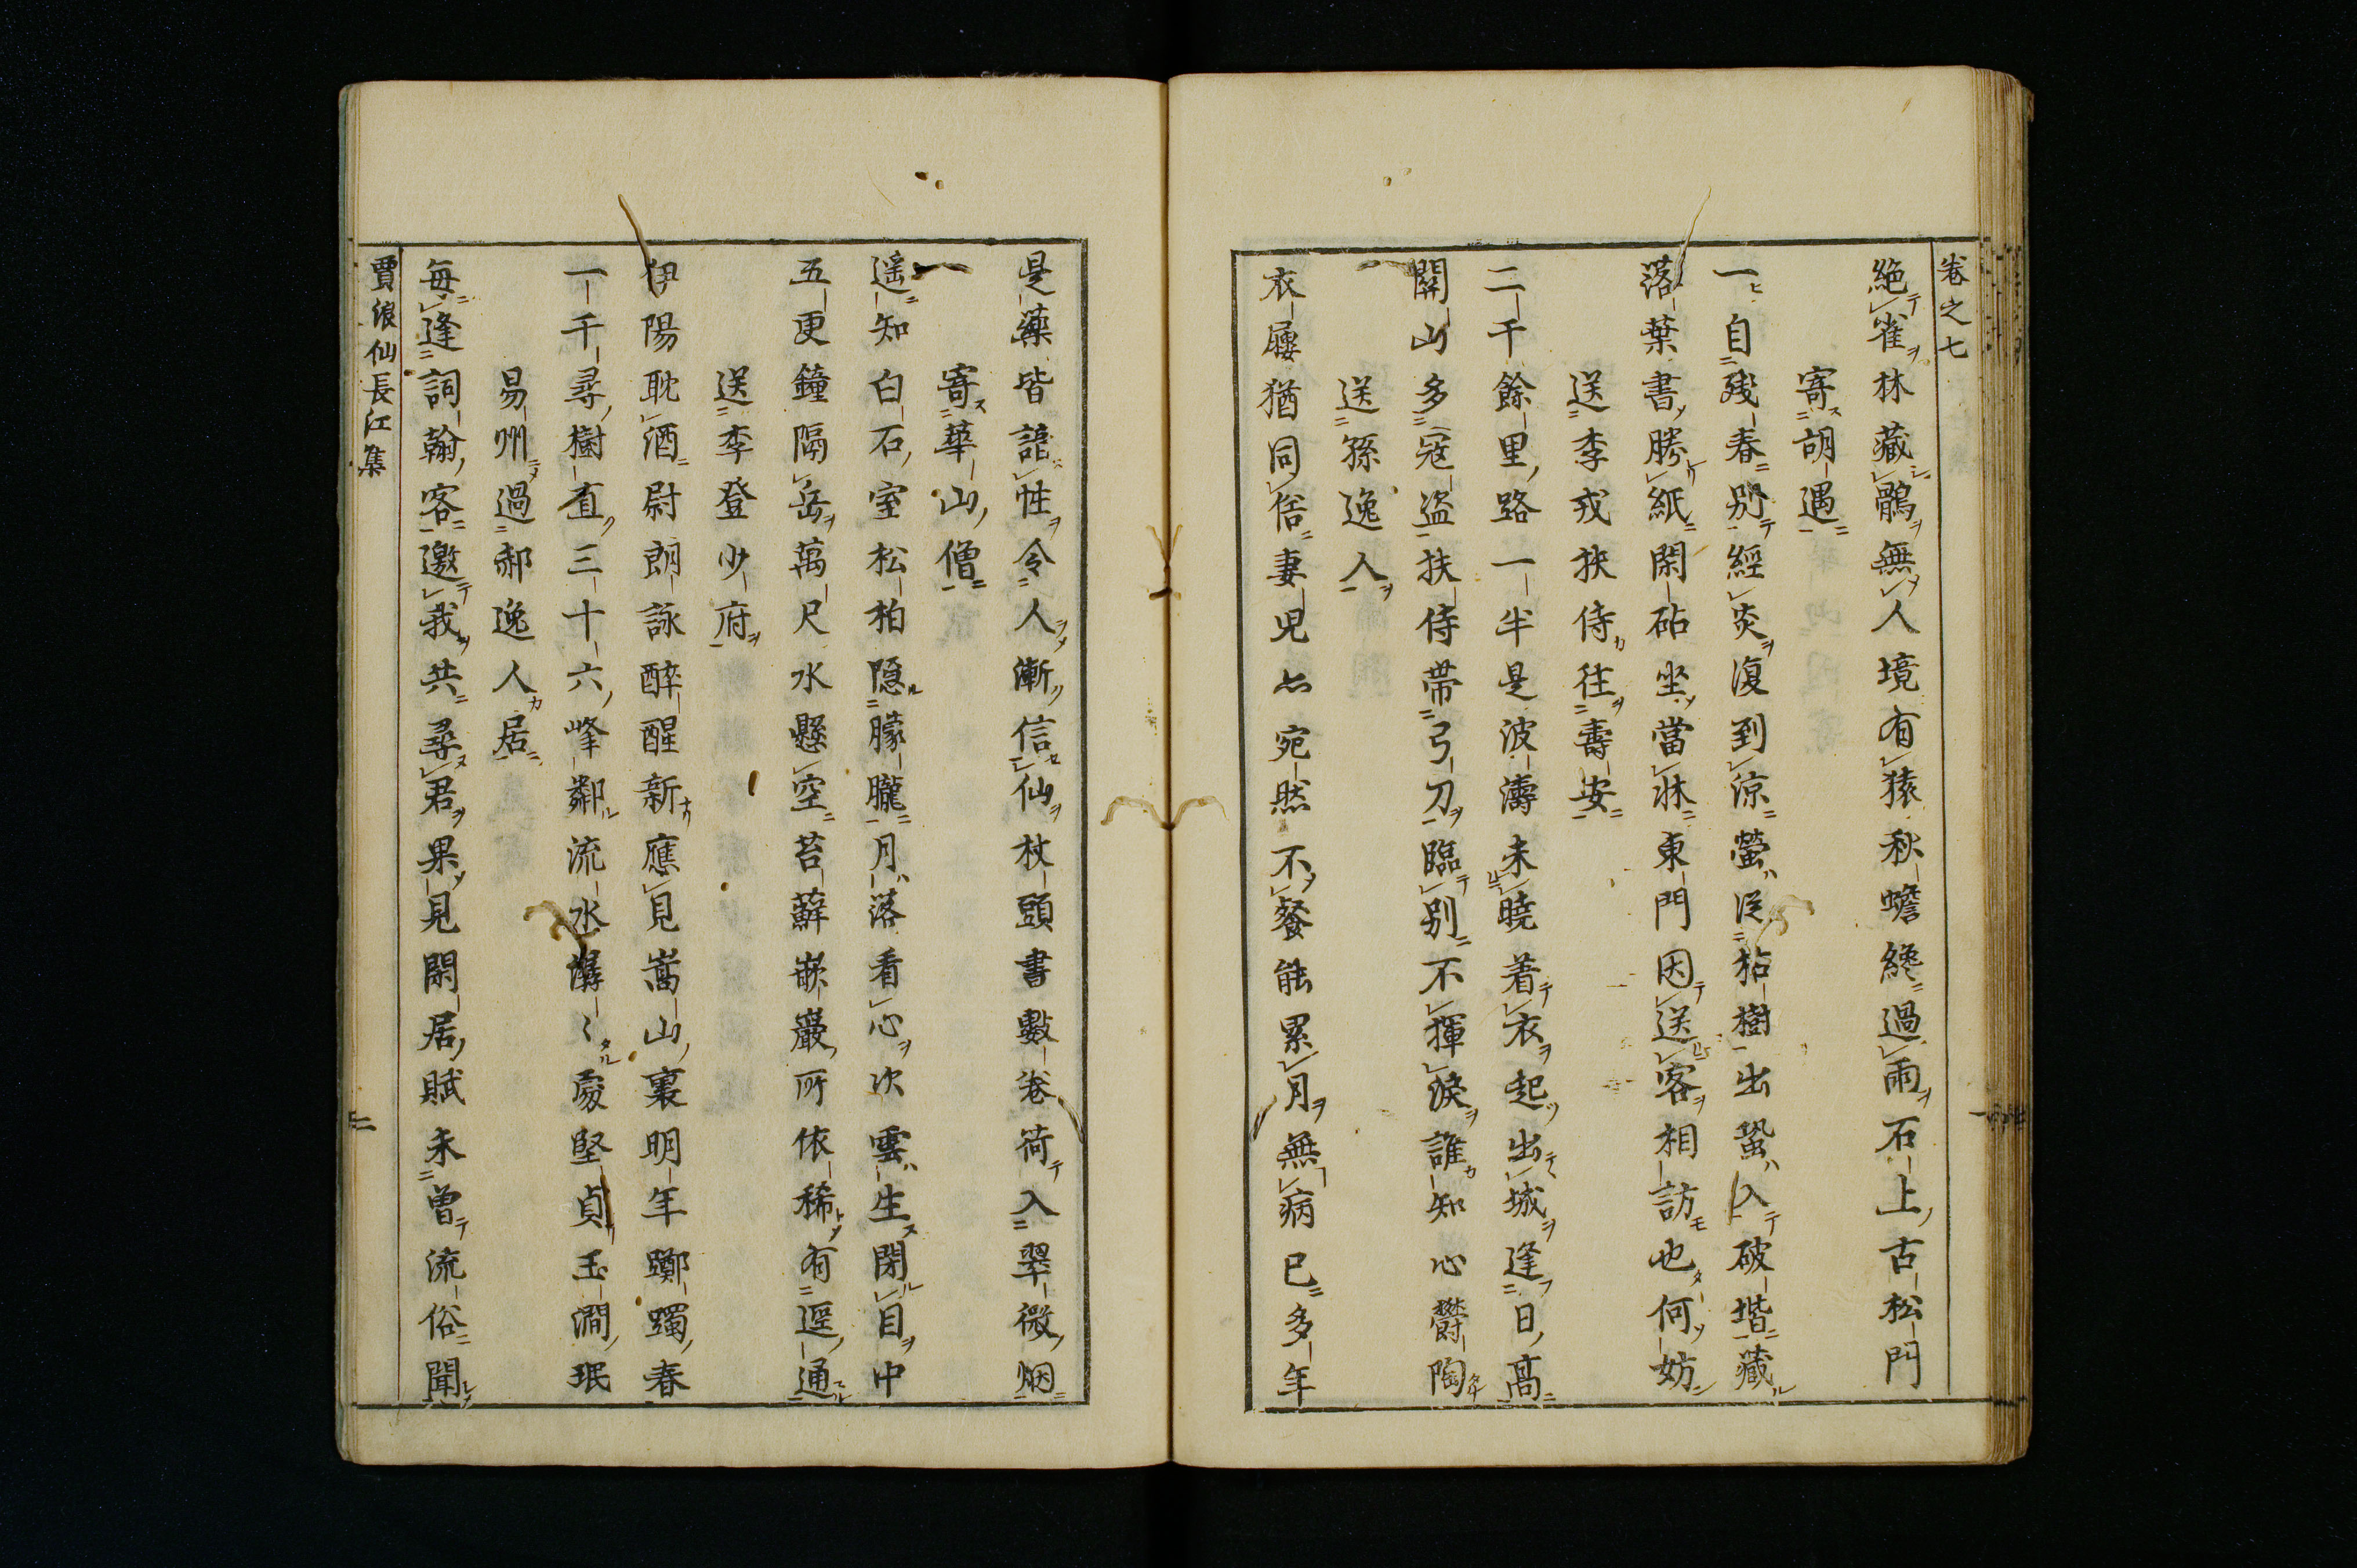 卷之七
絶雀林藏鶻無人境有猿秋蟾纔過雨石上古松門
寄胡遇
一自殘春別經炎復到涼螢從枯樹出蛩入破堦藏
落葉書勝紙閑砧坐當牀東門因送客相訪也何妨
送李戎挟侍往壽安
二千餘里路一半是波濤未曉着衣起出城逢日高
關山多冦盗扶侍帯弓刀臨别不揮淚誰知心欝陶
送孫逸人
衣屨猶同俗妻児亦宛然不餐能累月無病已多年
是藥皆諳性令人漸信仙杖頭書數卷荷入翠微烟
寄華山僧
遥知白石室松柏隠朦朧月落看心次雲生閉目中
五更鐘隔岳萬尺水懸空苔蘚嵌巖所依稀有逕通
送李登少府
伊陽耽酒尉朗詠醉醒新應見嵩山裏明年躑躅春
一千尋樹直三十六峰鄰流水潺〻處堅貞玉澗珉
易州過郝逸人居
每逢詞翰客邀我共尋君果見閑居賦未曽流俗聞
賈浪仙長江集
二